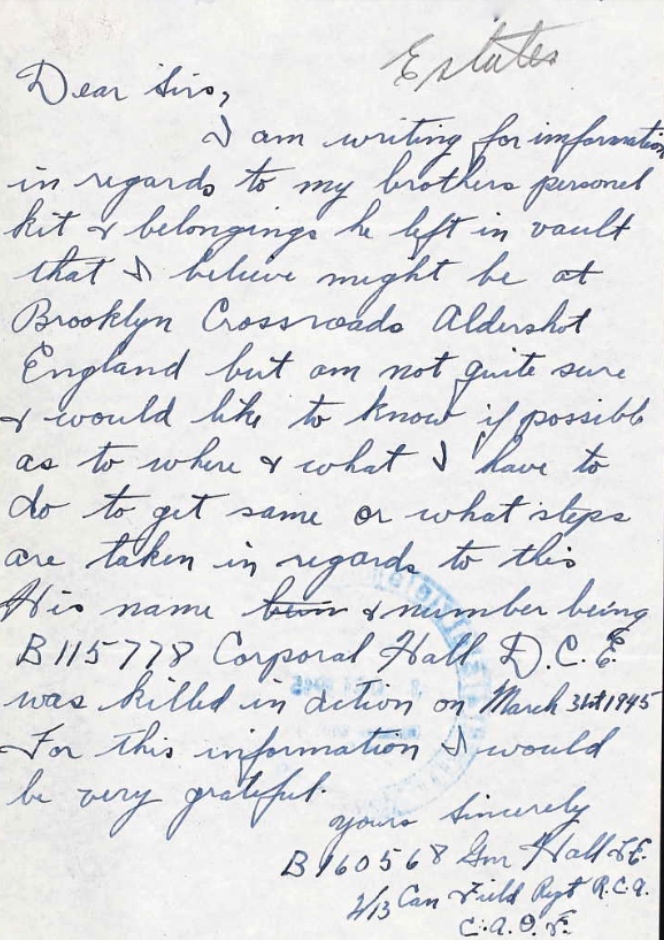 Estates
Dear Sirs,
I am writing for imformation
in regards to my brothers personel
kit & belongings he left in vault
that I believe might be at
Brooklyn Crossroads Aldershot
England but am not quite sure
& would like to know if possible
as to where & what I have to
do to get same or what steps
are taken in regards to this
His name & number being
B115778 Corporal Hall D.C.E.
was killed in action on March 31st 1945
For this information I would
be very grateful.
yours Sincerely
B160568 Gnr Hall
2/13 Can Field Regt R.C.A.
C.A.O.F.